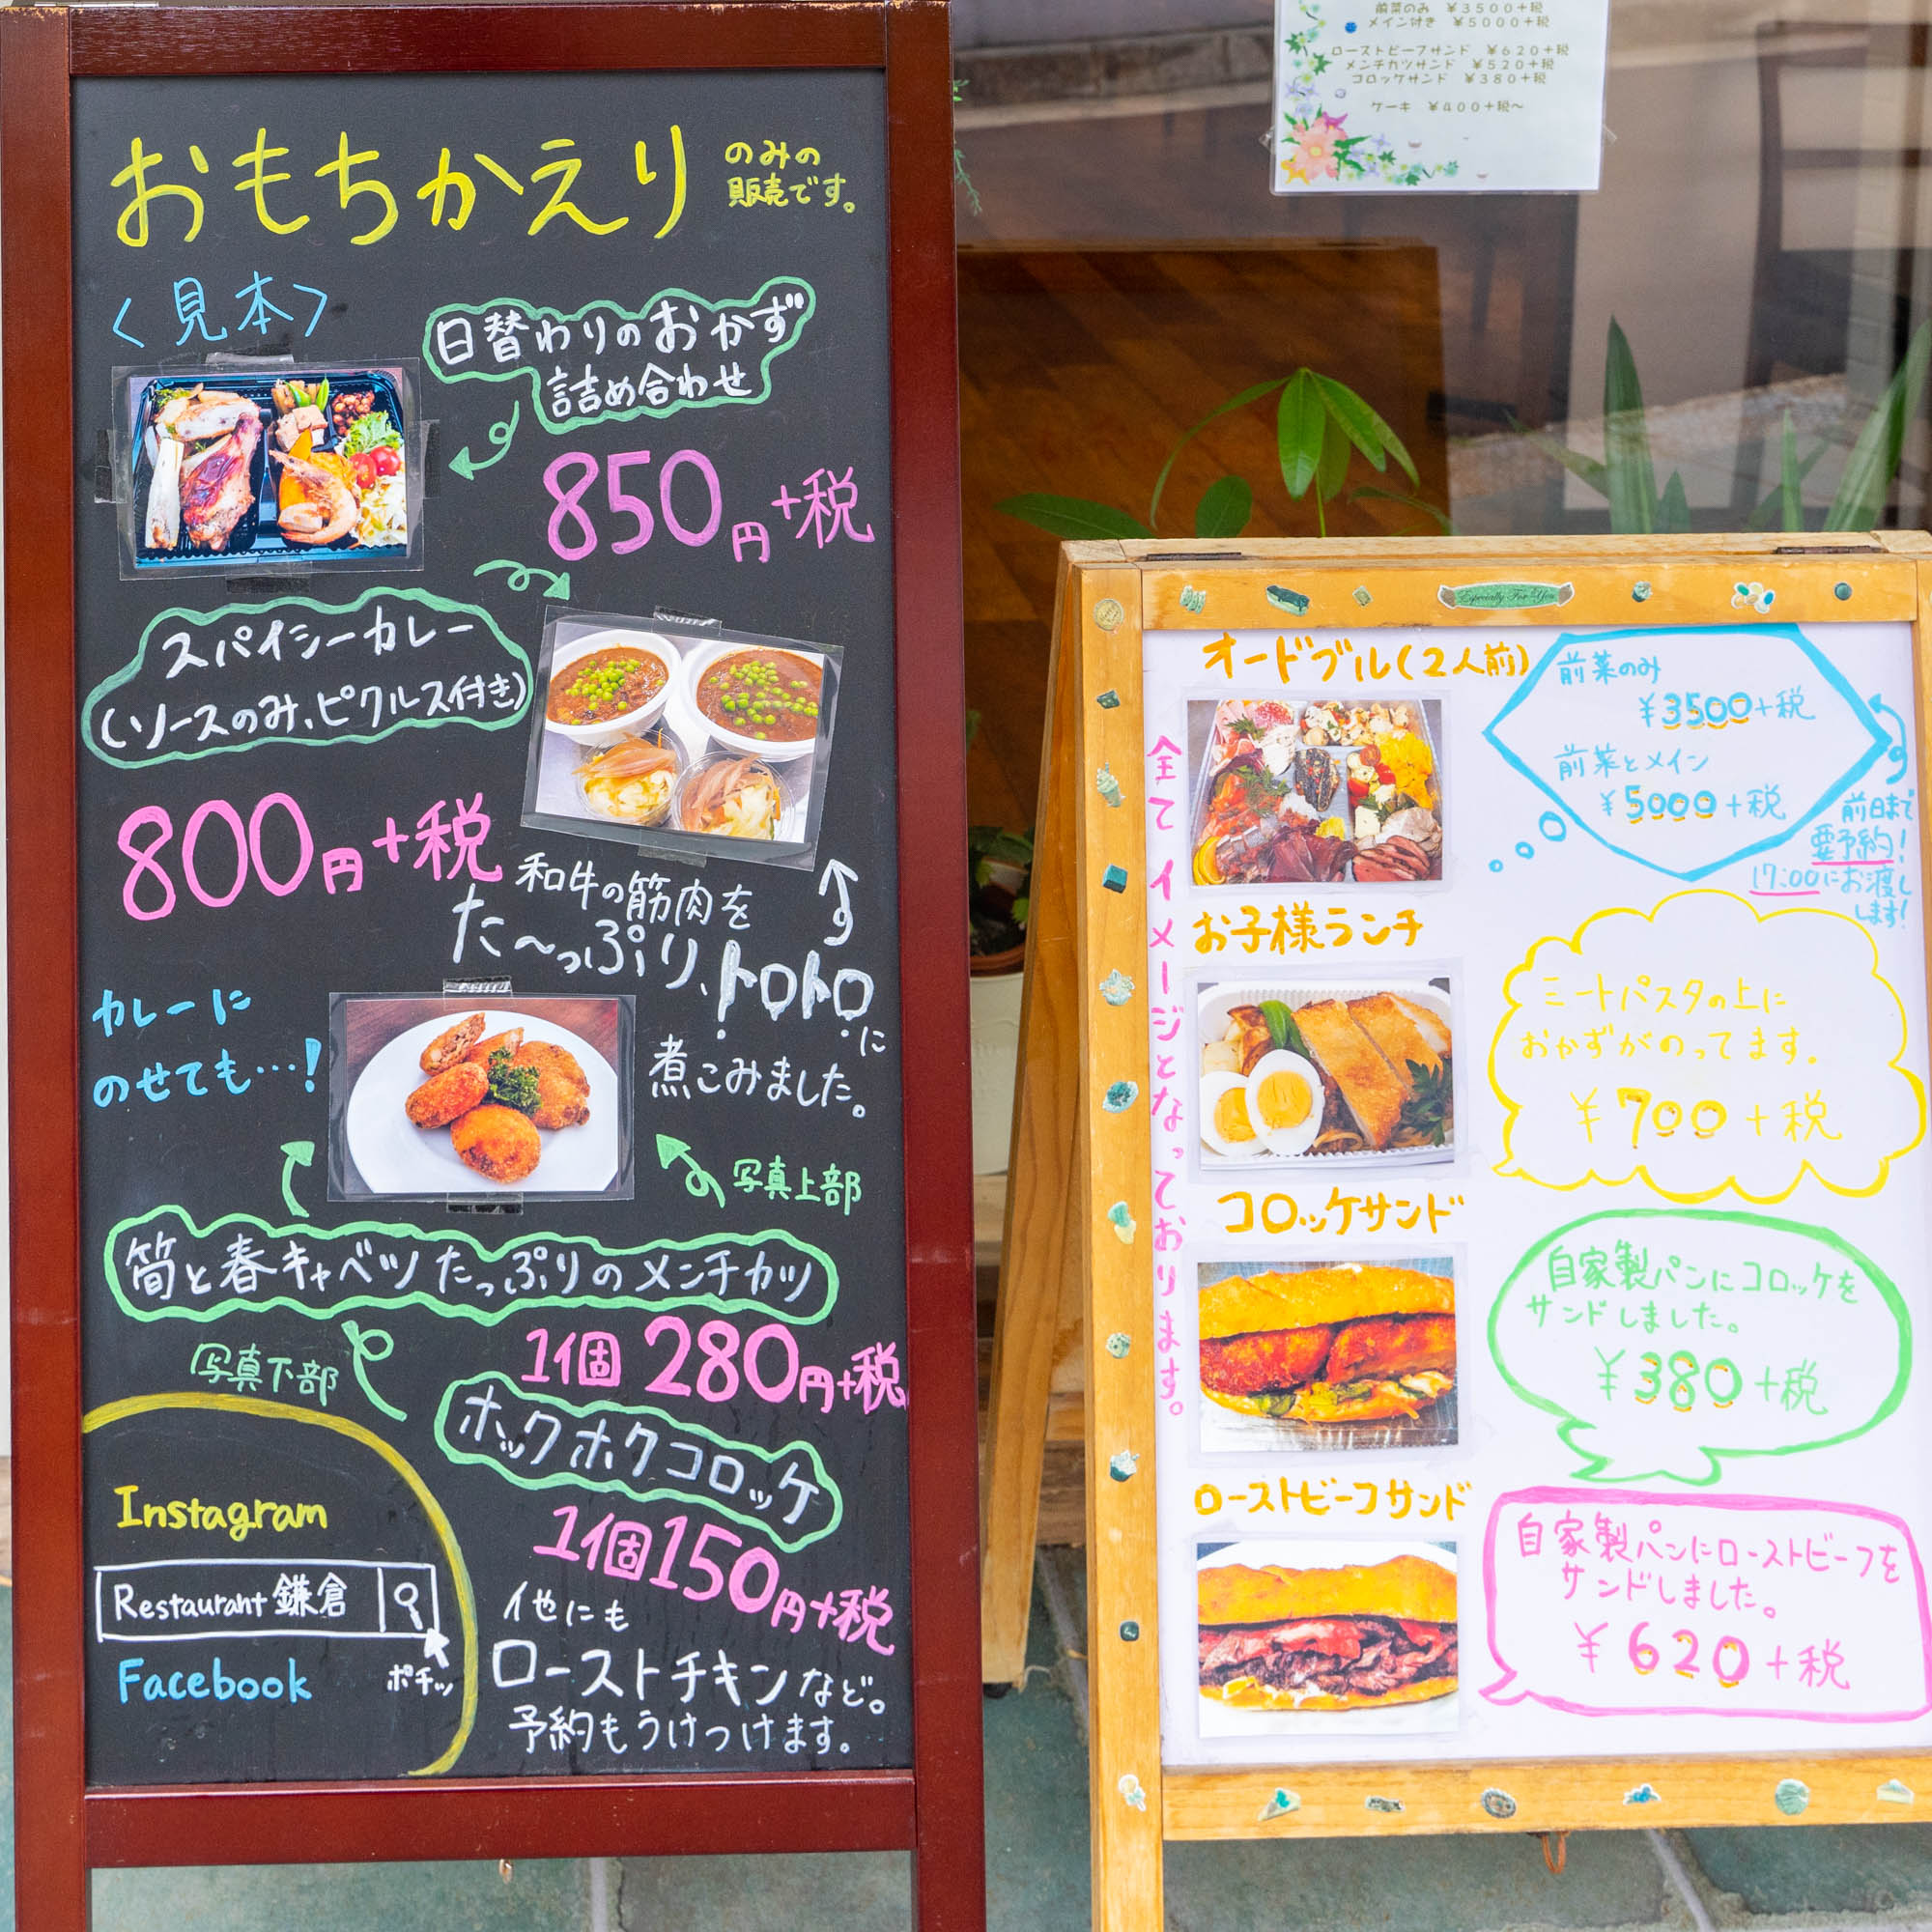 おもちかえり
のみの
販売です。
〈見本〉
日替わりのおかず
詰め合わせ
850円+税
スパイシーカレー
(ソースのみ、ピクルス付き)
800円+税
和牛の筋肉を
た〜っぷり、トロトロに
煮こみました。
カレーに
のせても…!
写真上部
筍と春キャベツたっぷりのメンチカツ
1個 280円+税
写真下部
ホックホクコロッケ
1個150円+税
他にも
ローストチキンなど。
予約もうけつけます。
Instagram
Restaurant 鎌倉
Facebook
ポチッ
前菜のみ ¥3500+税
メイン付き ¥5000+税
ローストビーフサンド ¥620+税
メンチカツサンド ¥520+税
コロッケサンド ¥380+税
ケーキ ¥400+税〜
Especially For You
全てイメージとなっております。
オードブル(2人前)
前菜のみ
¥3500+税
前菜とメイン
¥5000+税
前日まで
要予約!
17:00にお渡し
します!
お子様ランチ
ミートパスタの上に
おかずがのってます。
¥700+税
コロッケサンド
自家製パンにコロッケを
サンドしました。
¥380+税
ローストビーフサンド
自家製パンにローストビーフを
サンドしました。
¥620+税